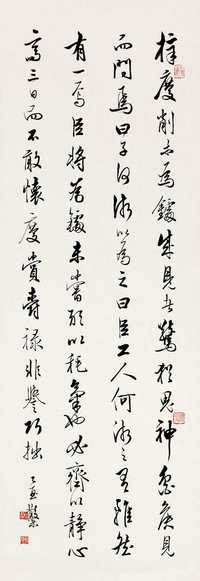 梓慶削木為鐻成見者驚猶鬼神魯侯見
而問焉曰子何術以為之曰臣工人何術之有雖然
有一焉臣將為鐻未嘗敢以耗氣也必齊以靜心
齊三日而不敢懷慶賞爵祿非譽巧拙
乙亥